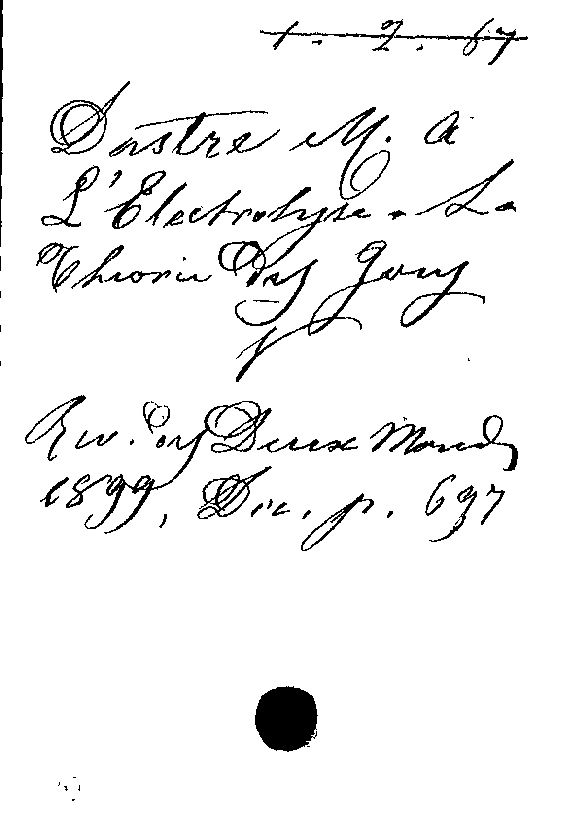 1. 2. 67
Dastre M. A
L'Electrolyse. La
Theorie Des Jons
Rev. des Deux Mondes
1899, Dec. p. 697